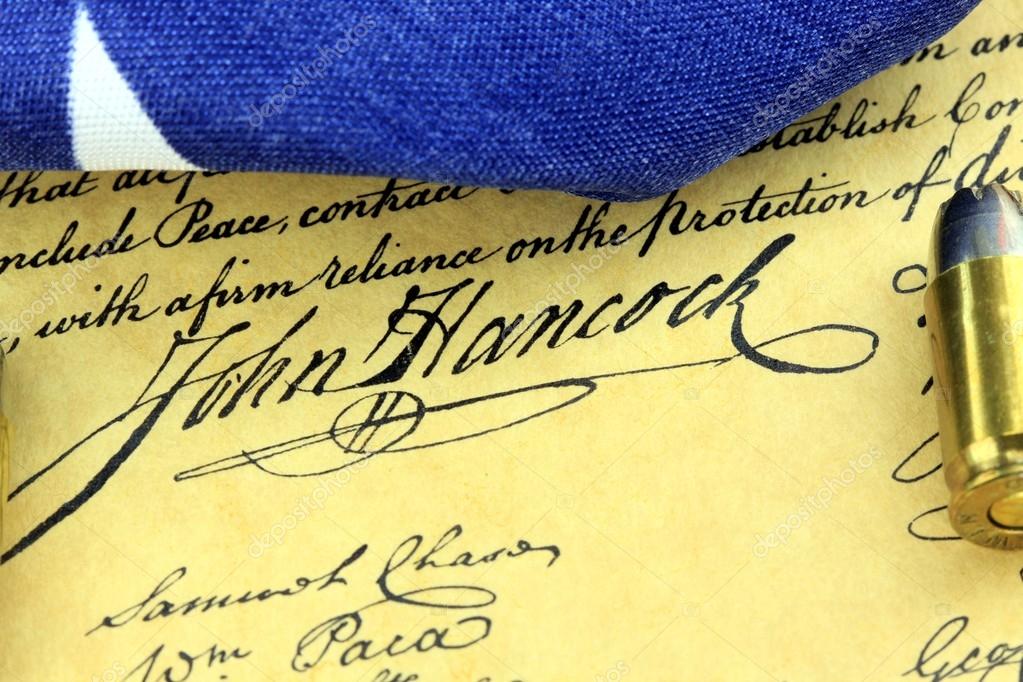 m an
that all stablish Con
nclude Peace, contract
, with a firm reliance on the protection of di
John Hancock
Samuel Chase
Wm Paca
Geo
depositphotos